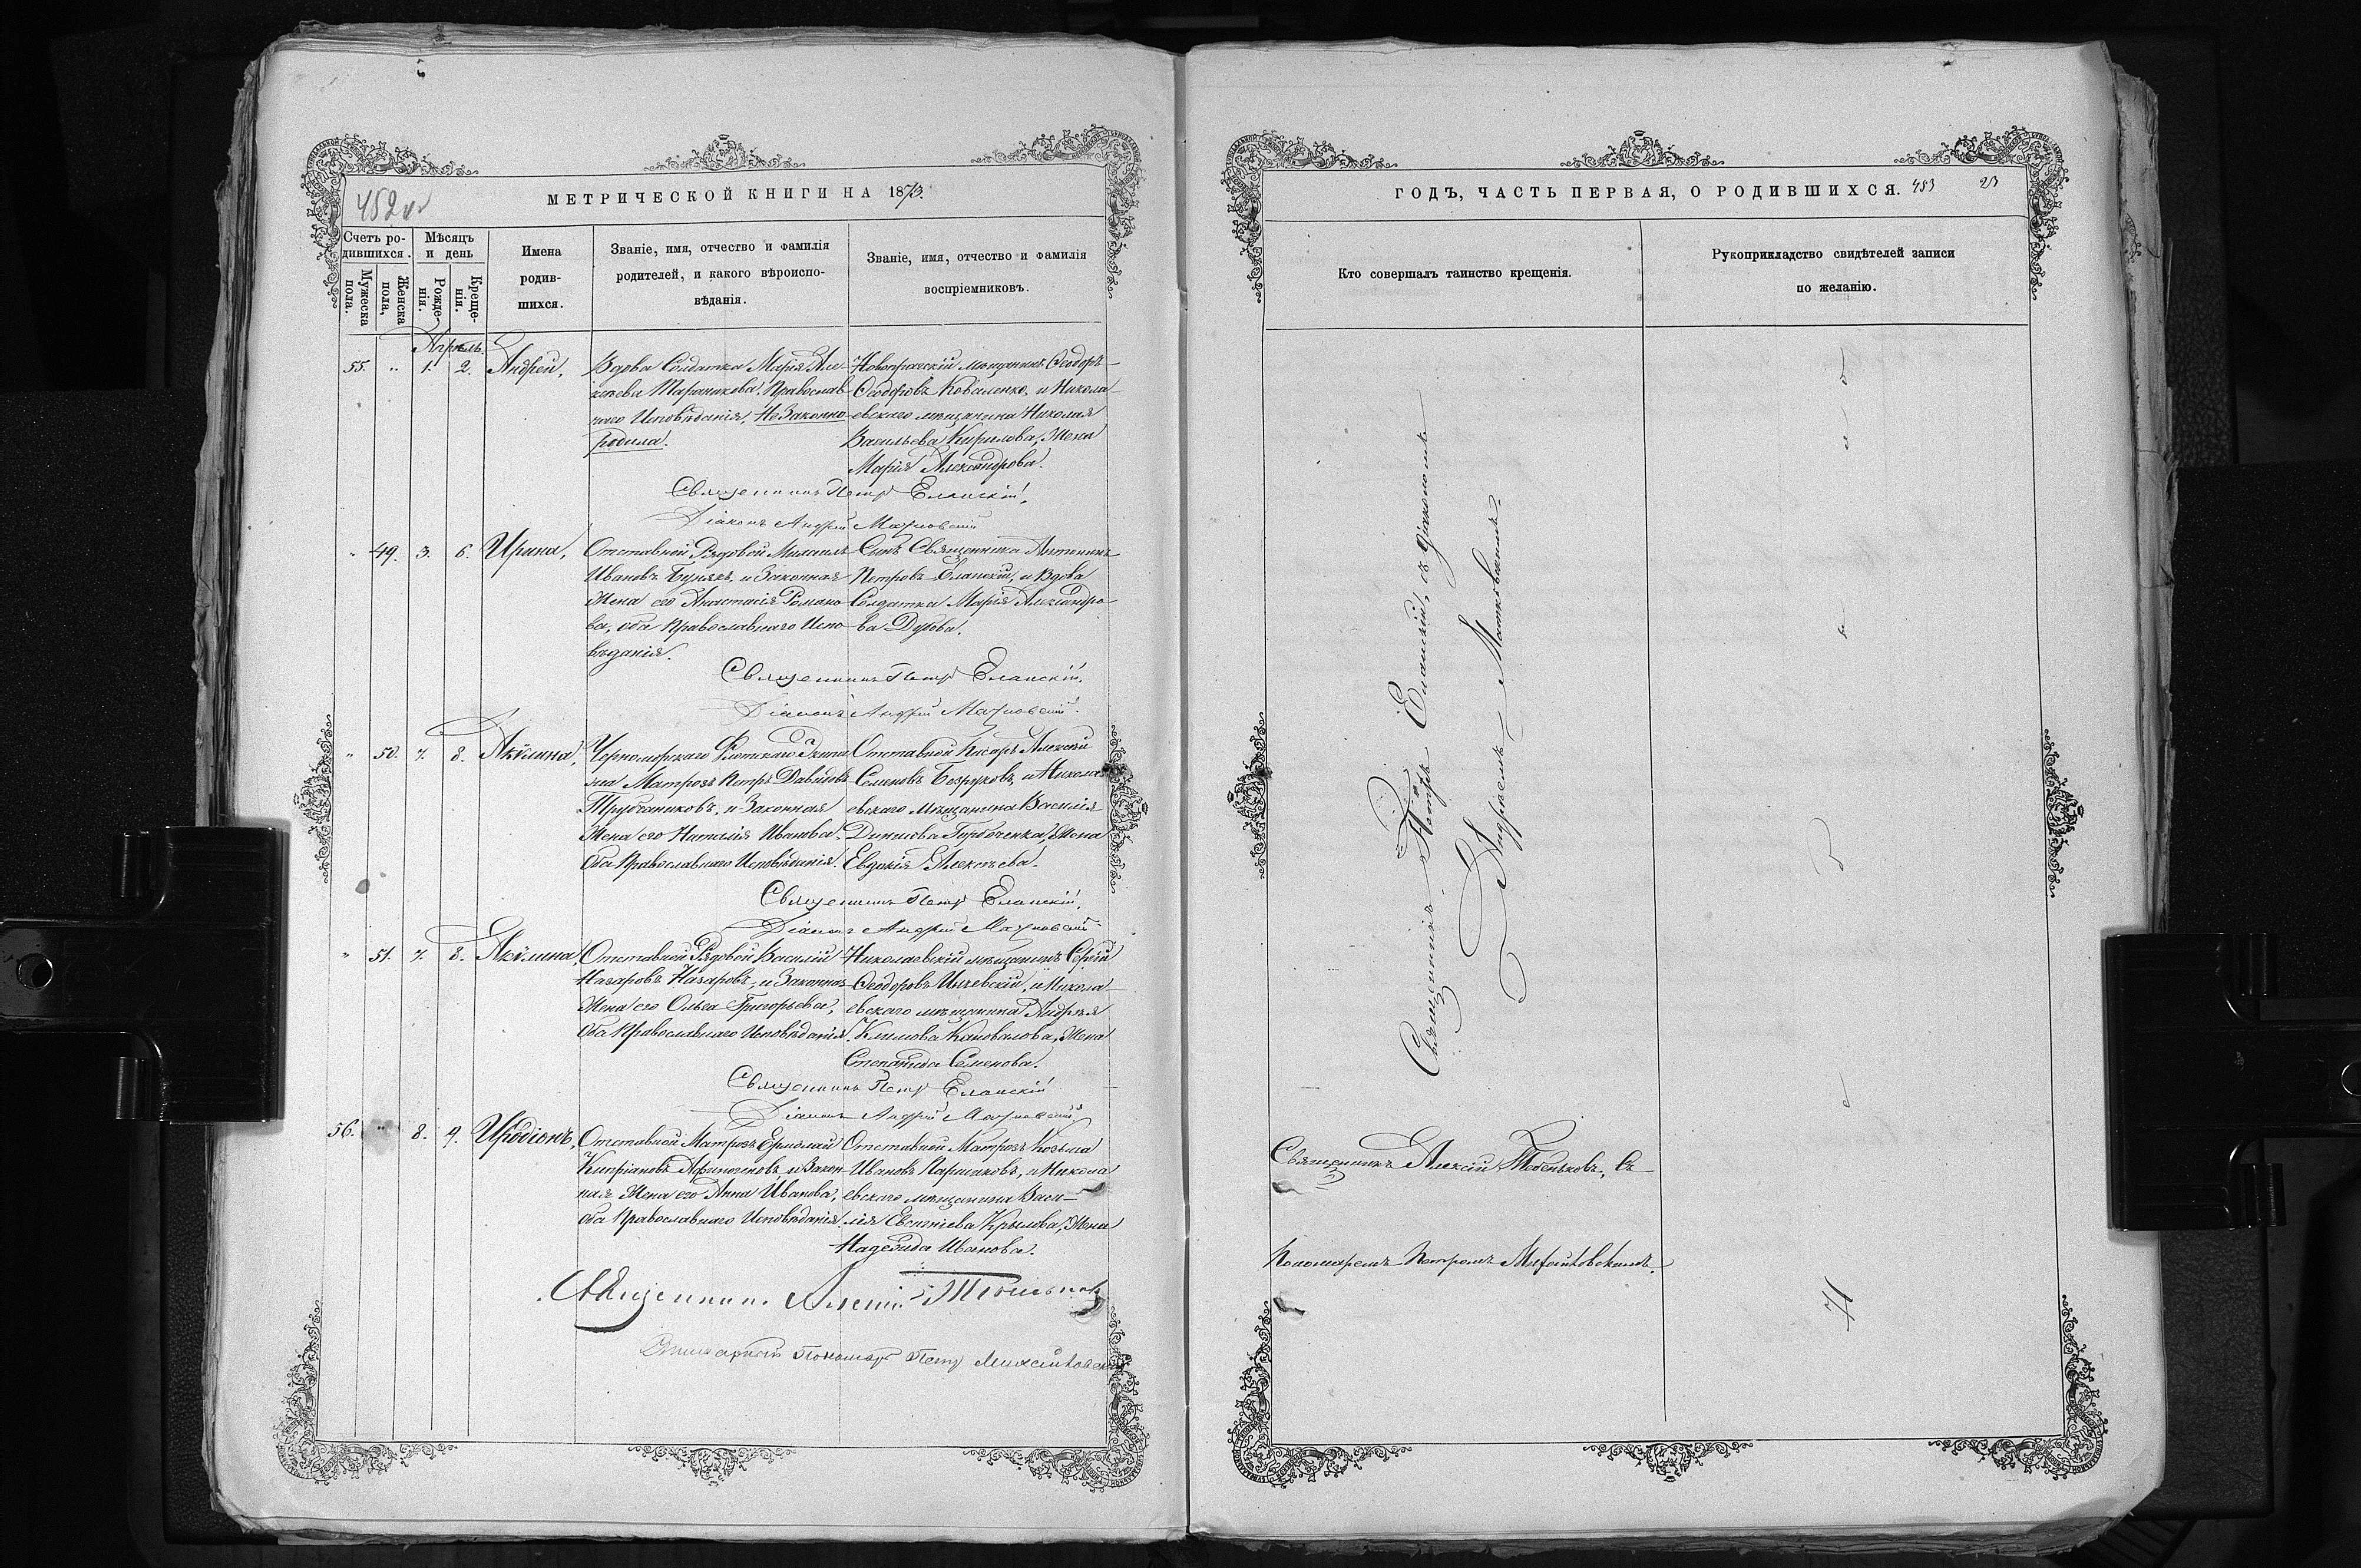 МЕТРИЧЕСКОЙ КНИГИ НА 1873.
Счетъ родившихся.
Мужеска пола.
Женска пола,
Мѣсяцъ и день
Рожденія.
Крещенія.
Имена
родив-
шихся.
Званіе, имя, отчество и фамилія
родителей, и какого вѣроиспо-
вѣданія.
Званіе, имя, отчество и фамилія
воспріемниковъ.
Апрель.
55. " 1. 2. Андрей,
Вдова Солдатка Марія Але-
Православ-
наго Исповѣданія, Не Законно
родила.
мѣщанинъ Ѳеодоръ
Ѳеодоровъ Коваленко, и Никола-
евскаго мѣщанина Николая
Васильева Кирилова, Жена
Марія Александрова.
Священникъ Петръ Еланскій,
Діаконъ Андрей
" 49. 3. 6. Ирина,
Отставной Рядовой Михаилъ
Ивановъ и Законная
Жена его Анастасія Романо-
ва, оба Православнаго Испо-
вѣданія.
Сынъ Священника Антонинъ
Петровъ Еланскій, и Вдова
Солдатка Марія Александро-
ва
Священникъ Петръ Еланскій,
Діаконъ Андрей
" 50. 7. 8. Акулина,
Черноморскаго Флотскаго Экипа
жа Матрозъ Петръ Давидовъ
Трубчаниковъ, и Законная
Жена его Наталія Иванова,
Оба Православнаго Исповѣданія.
Отставной Писарь Алексѣй
Семеновъ Безруковъ, и Никола
евскаго мѣщанина Василія
Жена
Евдокія Алексѣева.
Священникъ Петръ Еланскій,
Діаконъ Андрей
" 51. 7. 8. Акулина,
Отставной Рядовой Василій
Назаровъ Назаровъ, и Законная
Жена его Ольга Григорьева,
Оба Православнаго Исповѣданія.
Николаевскій мѣщанинъ Сергѣй
Ѳеодоровъ и Никола-
евскаго мѣщанина Андрея
Климова Кановалова, Жена
Степанида Семенова.
Священникъ Петръ Еланскій
Діаконъ Андрей
56. " 8. 9. Иродіонъ,
Отставной Матрозъ Ермолай
Кипріановъ Афиногеновъ и Закон-
ная Жена его Анна Иванова,
оба Православнаго Исповѣданія.
Отставной Матрозъ Козьма
Ивановъ и Никола
евскаго мѣщанина Васи-
лія Евгеніева Крылова, Жена
Надежда Иванова.
Священник. Алексій
Пономарь Петръ
ГОДЪ, ЧАСТЬ ПЕРВАЯ, О РОДИВШИХСЯ. 453 23
Кто совершалъ таинство крещенія.
Рукоприкладство свидѣтелей записи
по желанію.
Священникъ Петръ Еланскій, съ діакономъ
Андреемъ
Священникъ Алексій Тебеньковъ, Съ
Пономаремъ Петромъ